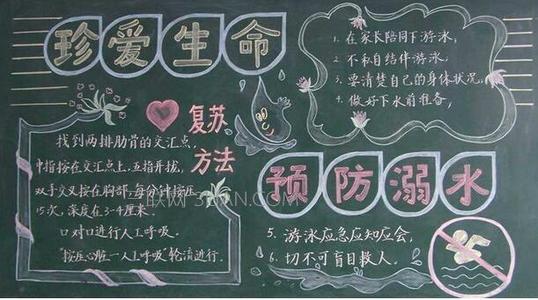 珍爱生命
复苏
方法
找到两排肋骨的交汇点,
中指按在交汇点上,五指并拢,
双手交叉按在胸部,每分钟按压
15次,深度在3-4厘米.
口对口进行人工呼吸.
"按压心脏-人工呼吸"轮流进行.
1. 在家长陪同下游泳,
2. 不私自结伴游泳,
3. 要清楚自己的身体状况,
4. 做好下水前准备,
预防溺水
5. 游泳应急应知应会,
6. 切不可盲目救人.